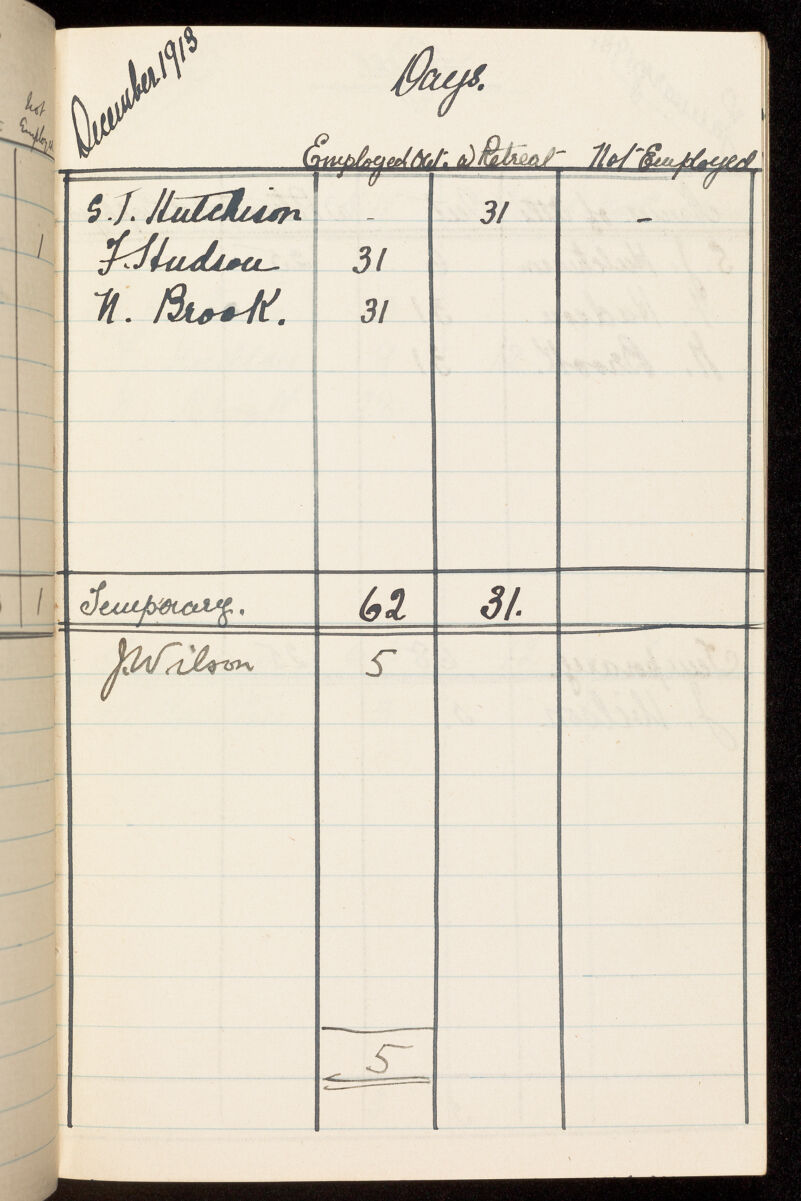 not
Employed
1
1
December 1913
Days.
Employed Out. @ Retreat Not Employed
S. J. Hutchison - 31 -
F. Hudson 31
N. Brook. 31
Temporary. 62 31.
J. Wilson 5
5